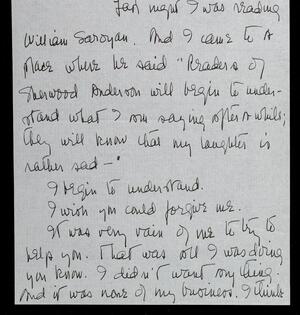 Last night I was reading
William Saroyan. And I came to a
place where he said "Readers of
Sherwood Anderson will begin to under-
stand what I am saying after a while;
they will know that my laughter is
rather sad—"
I begin to understand.
I wish you could forgive me.
It was very vain of me to try to
help you. That was all I was doing
you know. I didn't want any thing.
And it was none of my business. I think